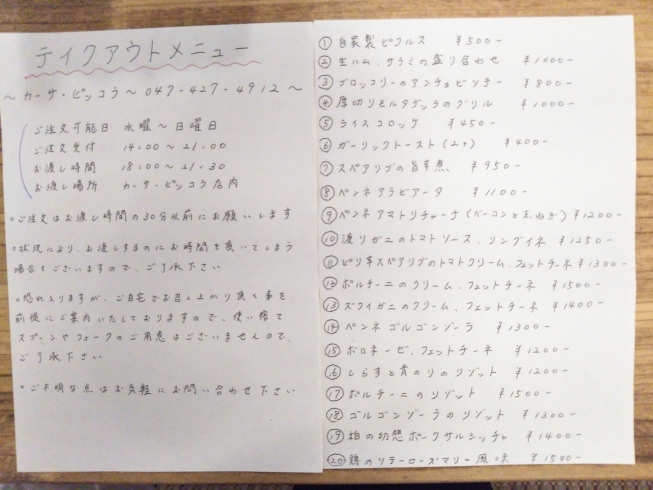 テイクアウトメニュー
～ カーサ・ピッコラ ～ 047-427-4912 ～
ご注文可能日 水曜～日曜日
ご注文受付 14:00～21:00
お渡し時間 18:00～21:30
お渡し場所 カーサ・ピッコラ店内
・ご注文はお渡し時間の30分以前にお願いします
・状況により、お渡しするのにお時間を頂いてしまう
場合もございますので、ご了承下さい
・恐れ入りますが、ご自宅でお召し上がり頂く事を
前提にご案内いたしておりますので、使い捨て
スプーンやフォークのご用意はございませんので、
ご了承下さい
・ご不明な点はお気軽にお問い合わせ下さい
① 自家製ピクルス ¥500-
② 生ハム、サラミの盛り合わせ ¥1000-
③ ブロッコリーのアンチョビソテー ¥800-
④ 厚切りモルタデッラのグリル ¥1000-
⑤ ライスコロッケ ¥450-
⑥ ガーリックトースト(2ヶ) ¥400-
⑦ スペアリブの旨辛煮 ¥950-
⑧ ペンネアラビアータ ¥1100-
⑨ ペンネアマトリチャーナ(ベーコンと玉ねぎ) ¥1200-
⑩ 渡りガニのトマトソース、リングイネ ¥1250-
⑪ ピリ辛スペアリブのトマトクリーム、フェットチーネ ¥1300-
⑫ ポルチーニのクリーム、フェットチーネ ¥1500-
⑬ ズワイガニのクリーム、フェットチーネ ¥1400-
⑭ ペンネゴルゴンゾーラ ¥1300-
⑮ ボロネーゼ、フェットチーネ ¥1200-
⑯ しらすと青のりのリゾット ¥1200-
⑰ ポルチーニのリゾット ¥1500-
⑱ ゴルゴンゾーラのリゾット ¥1300-
⑲ 柏の幻想ポークサルシッチャ ¥1400-
⑳ 鶏のソテーローズマリー風味 ¥1500-